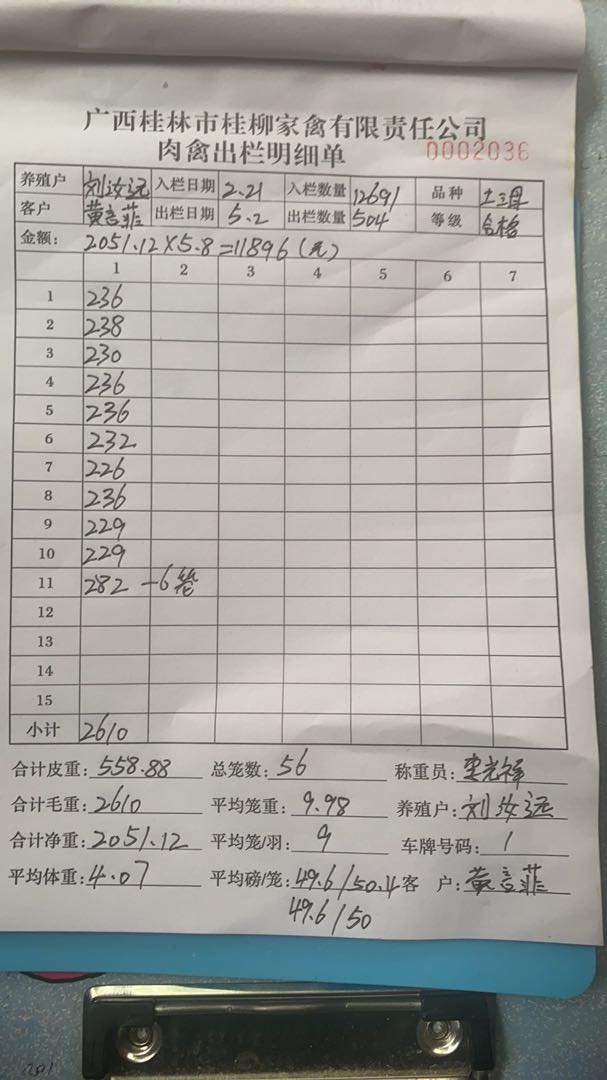 广西桂林市桂柳家禽有限责任公司
肉禽出栏明细单 0002036
养殖户 刘汝远 入栏日期 2.21 入栏数量 12691 品种 土三母
客户 黄言菲 出栏日期 5.2 出栏数量 504 等级 合格
金额: 2051.12×5.8=11896(元)
1 2 3 4 5 6 7
1 236
2 238
3 230
4 236
5 236
6 232
7 226
8 236
9 229
10 229
11 282 -6笼
12
13
14
15
小计 2610
合计皮重: 558.88 总笼数: 56 称重员: 光祥
合计毛重: 2610 平均笼重: 9.98 养殖户: 刘汝远
合计净重: 2051.12 平均笼/羽: 9 车牌号码: 1
平均体重: 4.07 平均磅/笼: 49.6/50.4 客 户: 黄言菲
49.6/50